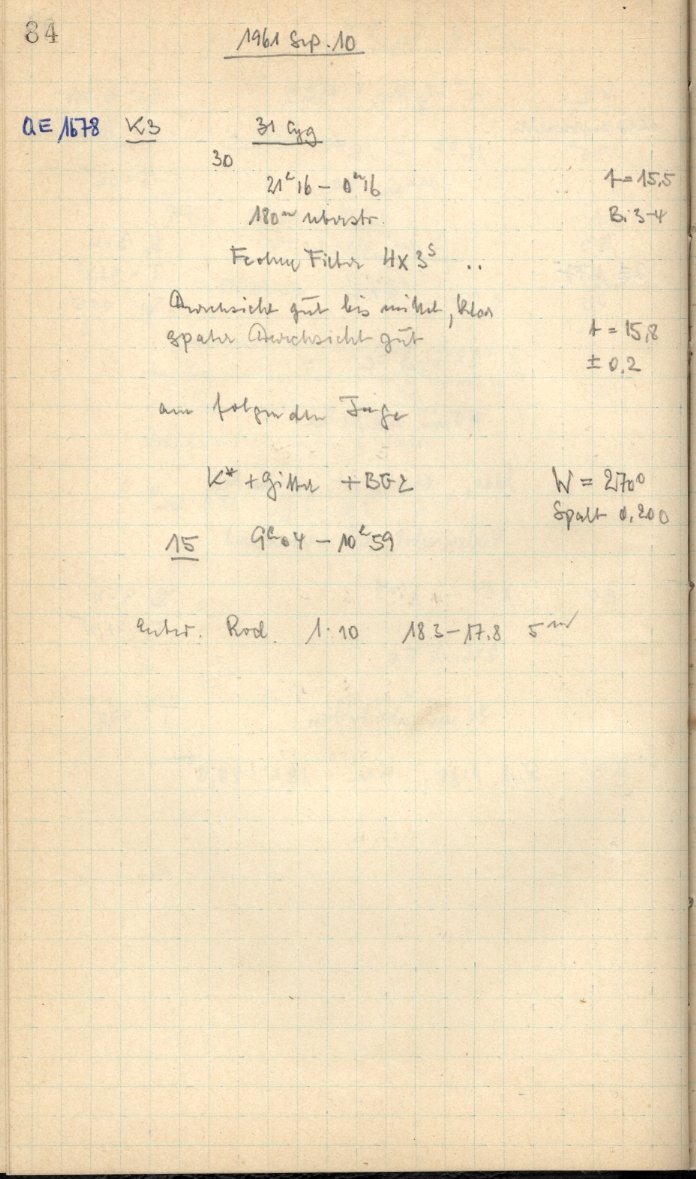 84
1961 Sep. 10
QE 1678 K3 31 Cyg
30
21h16 – 0h16 t = 15,5
180m überstr. Bi 3-4
Filter 4x3s ..
Durchsicht gut bis mittel, klar
später Durchsicht gut t = 15,8
± 0,2
am folgenden Tage
K* + Gitter + BG2 W = 2700
Spalt 0,200
15 9h04 – 10h59
Entw. Rod. 1:10 18 3 – 17.8 5m